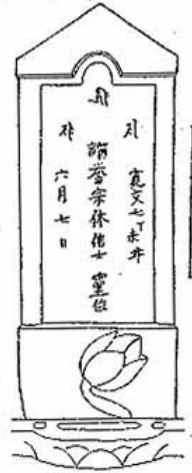 寛文七丁未年
誉宗休信士 霊位
六月七日